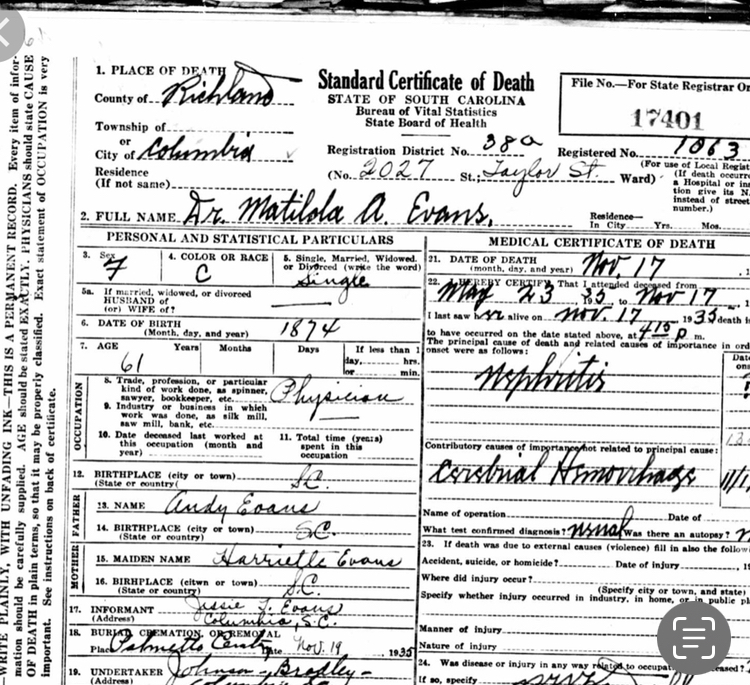 WRITE PLAINLY, WITH UNFADING INK—THIS IS A PERMANENT RECORD. Every item of infor-
mation should be carefully supplied. AGE should be stated EXACTLY. PHYSICIANS should state CAUSE
OF DEATH in plain terms, so that it may be properly classified. Exact statement of OCCUPATION is very
important. See instructions on back of certificate.
1. PLACE OF DEATH
County of Richland
Township of
or
City of Columbia
Residence
(If not same)
Standard Certificate of Death
STATE OF SOUTH CAROLINA
Bureau of Vital Statistics
State Board of Health
Registration District No. 38a
(No. 2027 St.; Taylor St. Ward)
File No.—For State Registrar On
17401
Registered No. 1063
(For use of Local Regist
(If death occurre
a Hospital or ins
tion give its N
instead of street
number.)
2. FULL NAME Dr. Matilda A. Evans.
Residence—
In City Yrs. Mos.
PERSONAL AND STATISTICAL PARTICULARS
3. Sex
F
4. COLOR OR RACE
C
5. Single, Married, Widowed,
or Divorced (write the word)
Single
5a. If married, widowed, or divorced
HUSBAND of
(or) WIFE of?
6. DATE OF BIRTH
(Month, day, and year) 1874
7. AGE Years Months Days If less than 1
61
day, hrs.
or min.
OCCUPATION
8. Trade, profession, or particular
kind of work done, as spinner,
sawyer, bookkeeper, etc. Physician
9. Industry or business in which
work was done, as silk mill,
saw mill, bank, etc.
10. Date deceased last worked at
this occupation (month and
year)
11. Total time (years)
spent in this
occupation
12. BIRTHPLACE (city or town)
(State or country) S.C.
FATHER
13. NAME Andy Evans
14. BIRTHPLACE (city or town)
(State or country) S.C.
MOTHER
15. MAIDEN NAME Harriette Evans
16. BIRTHPLACE (citwn or town)
(State or country) S.C.
17. INFORMANT Jessie T. Evans
(Address) Columbia, S.C.
18. BURIAL, CREMATION, OR REMOVAL
Place Palmetto Date Nov. 19 1935
19. UNDERTAKER Johnson-Bradley-
(Address) Columbia
MEDICAL CERTIFICATE OF DEATH
21. DATE OF DEATH
(month, day, and year) Nov. 17
22. I HEREBY CERTIFY That I attended deceased from
May 23 35 to Nov 17
I last saw her alive on Nov. 17, 1935 death i
to have occurred on the date stated above, at 415 P m.
The principal cause of death and related causes of importance in ord
onset were as follows:
Date
ons
Nephritis
Contributory causes of importance not related to principal cause:
Cerebrual Hemorrhage 11/1
Name of operation Date of
What test confirmed diagnosis? usual Was there an autopsy?
23. If death was due to external causes (violence) fill in also the follow
Accident, suicide, or homicide? Date of injury , 1
Where did injury occur?
(Specify city or town, and state)
Specify whether injury occurred in industry, in home, or in public pl
Manner of injury
Nature of injury
24. Was disease or injury in any way related to occupat
If so, specify